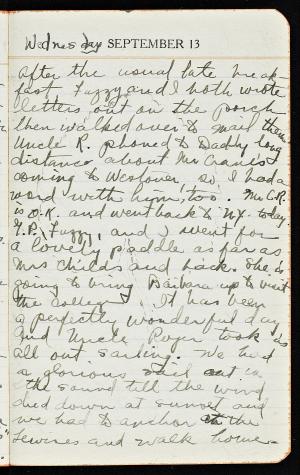 Wednesday SEPTEMBER 13
After the usual late break-
fast Fuzzy and I both wrote
letters out on the porch
then walked over to mail them.
Uncle R. phoned to Daddy long
distance about Mr Crane's
coming to Westover, so I had a
word with him, too. Mr C.R.
is O.K. and went back to N.Y. today.
Fuzzy, and I went for
a lovely paddle as far as
Mrs Childs and back. She is
going to bring Barbara up to visit
the college. It has been
a perfectly wonderful day
and Uncle Roger took us
all out sailing. We had
a glorious sail out in
the sound till the wind
died down at sunset and
we had to anchor at the
and walk home.